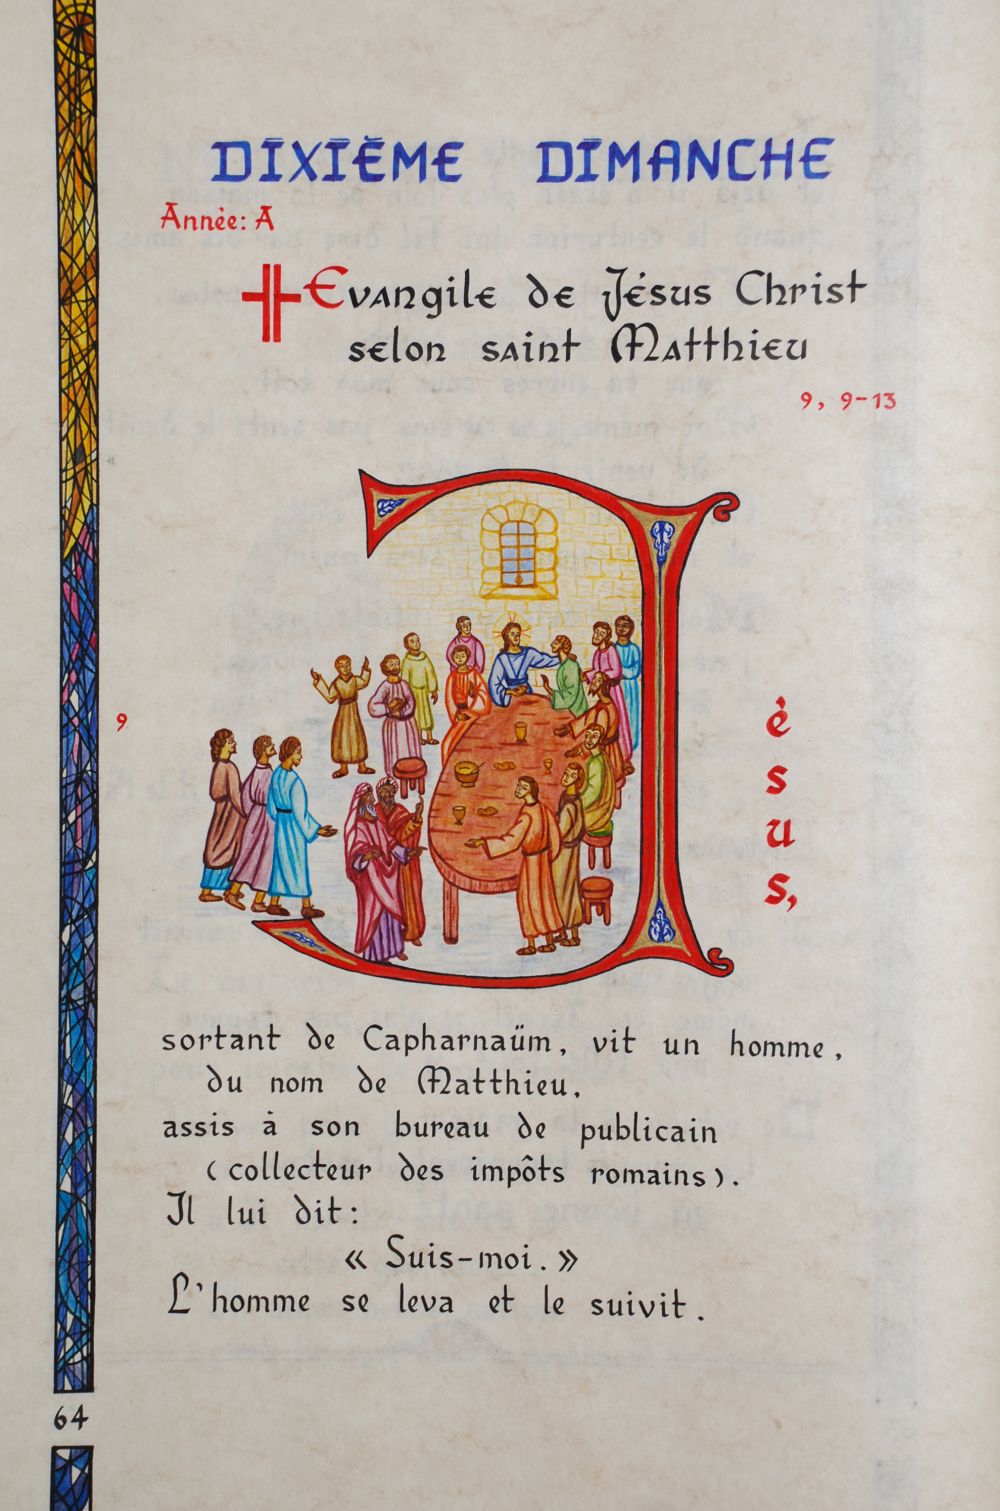 DIXIÈME DIMANCHE
Année: A
Evangile de Jésus Christ
selon saint Matthieu
9, 9-13
9
Jésus,
sortant de Capharnaüm, vit un homme,
du nom de Matthieu,
assis à son bureau de publicain
(collecteur des impôts romains).
Il lui dit:
« Suis-moi. »
L'homme se leva et le suivit.
64